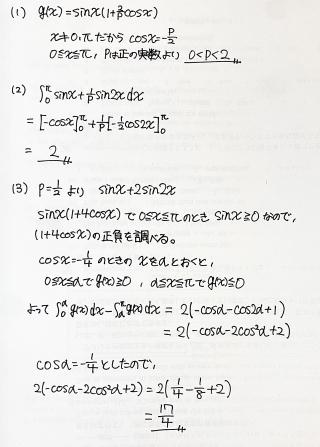 (1) g(x)=sinx(1+2/p cosx)
x≠0,πだから cosx=-p/2
0≦x≦π, Pは正の実数より 0<P<2
(2) ∫₀^π sinx+1/p sin2x dx
=[-cosx]₀^π+1/p[-1/2cos2x]₀^π
= 2
(3) P=1/2より sinx+2sin2x
sinx(1+4cosx)で0≦x≦πのとき sinx≧0なので,
(1+4cosx)の正負を調べる。
cosx=-1/4のときのxをaとおくと,
0≦x≦aでg(x)≧0, a≦x≦πでg(x)≦0
よって ∫₀^a g(x)dx-∫ₐ^π g(x)dx = 2(-cosa-cos2a+1)
= 2(-cosa-2cos²a+2)
cosa=-1/4としたので,
2(-cosa-2cos²a+2)=2(1/4-1/8+2)
=17/4